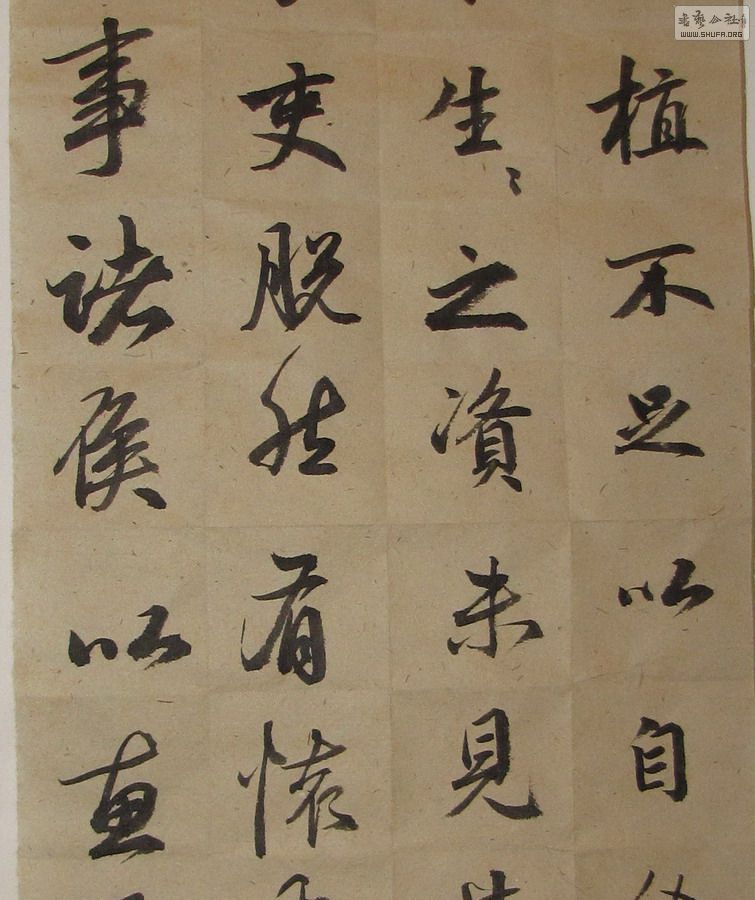 植不足以自
生〻之資未見
吏脱然有懷
事諸侯以惠
書藝公社
WWW.SHUFA.ORG